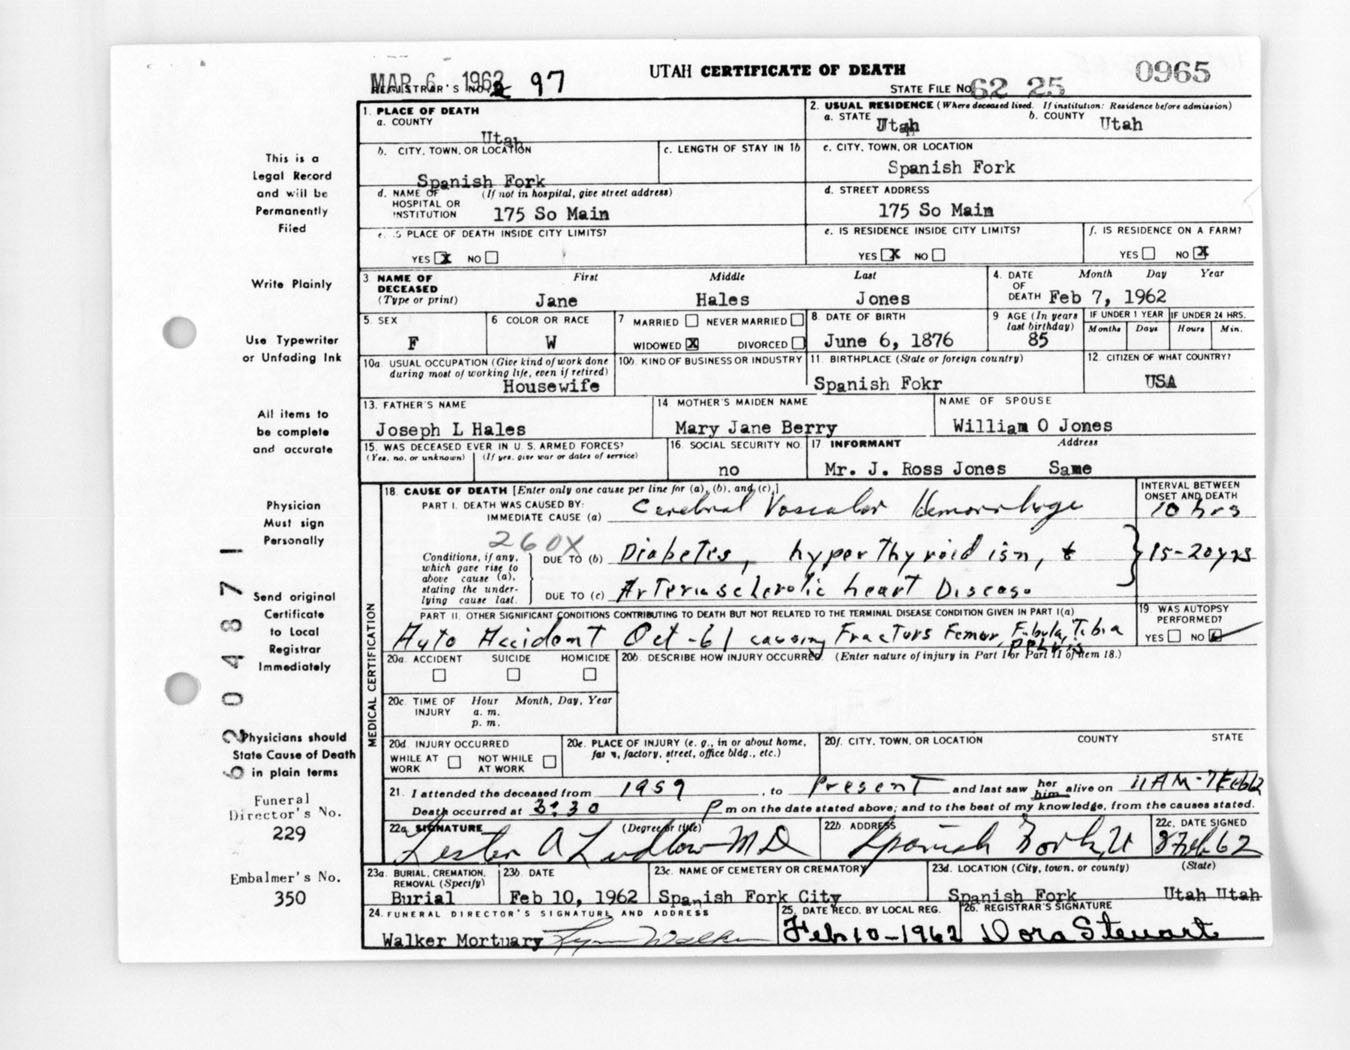 MAR 6 1962 97 UTAH CERTIFICATE OF DEATH 0965
REGISTRAR'S NO. STATE FILE NO. 62 25
1. PLACE OF DEATH
a. COUNTY
Utah
2. USUAL RESIDENCE (Where deceased lived. If institution: Residence before admission)
a. STATE Utah b. COUNTY Utah
b. CITY, TOWN, OR LOCATION
Spanish Fork
c. LENGTH OF STAY IN 1b
c. CITY, TOWN, OR LOCATION
Spanish Fork
d. NAME OF (If not in hospital, give street address)
HOSPITAL OR
INSTITUTION 175 So Main
d. STREET ADDRESS
175 So Main
e. IS PLACE OF DEATH INSIDE CITY LIMITS?
YES X NO
e. IS RESIDENCE INSIDE CITY LIMITS?
YES X NO
f. IS RESIDENCE ON A FARM?
YES NO X
3 NAME OF DECEASED First Middle Last
(Type or print) Jane Hales Jones
4. DATE OF DEATH Month Day Year
Feb 7, 1962
5. SEX
F
6 COLOR OR RACE
W
7 MARRIED NEVER MARRIED
WIDOWED X DIVORCED
8. DATE OF BIRTH
June 6, 1876
9 AGE (In years last birthday)
85
IF UNDER 1 YEAR
Months Days
IF UNDER 24 HRS.
Hours Min.
10a USUAL OCCUPATION (Give kind of work done
during most of working life, even if retired)
Housewife
10b. KIND OF BUSINESS OR INDUSTRY
11. BIRTHPLACE (State or foreign country)
Spanish Fokr
12. CITIZEN OF WHAT COUNTRY?
USA
13. FATHER'S NAME
Joseph L Hales
14 MOTHER'S MAIDEN NAME
Mary Jane Berry
NAME OF SPOUSE
William O Jones
15. WAS DECEASED EVER IN U.S. ARMED FORCES?
(Yes, no, or unknown) (If yes, give war or dates of service)
16. SOCIAL SECURITY NO.
no
17 INFORMANT Address
Mr. J. Ross Jones Same
MEDICAL CERTIFICATION
18. CAUSE OF DEATH [Enter only one cause per line for (a), (b), and (c).]
INTERVAL BETWEEN
ONSET AND DEATH
PART I. DEATH WAS CAUSED BY:
IMMEDIATE CAUSE (a) Cerebral Vascular Hemorrhage 10 hrs
260X
Conditions, if any,
which gave rise to
above cause (a),
stating the under-
lying cause last.
DUE TO (b) Diabetes, hyperthyroidism, & 15-20 yrs
DUE TO (c) Arteriosclerotic heart Disease
PART II. OTHER SIGNIFICANT CONDITIONS CONTRIBUTING TO DEATH BUT NOT RELATED TO THE TERMINAL DISEASE CONDITION GIVEN IN PART I(a)
Auto Accident Oct-61 causing Fracturs Femur, Fibula, Tibia
pelvis
19. WAS AUTOPSY
PERFORMED?
YES NO
20a. ACCIDENT SUICIDE HOMICIDE
20b. DESCRIBE HOW INJURY OCCURRED. (Enter nature of injury in Part I or Part II of item 18.)
20c. TIME OF INJURY Hour Month, Day, Year
a. m.
p. m.
20d. INJURY OCCURRED
WHILE AT WORK NOT WHILE AT WORK
20e. PLACE OF INJURY (e. g., in or about home,
farm, factory, street, office bldg., etc.)
20f. CITY, TOWN, OR LOCATION COUNTY STATE
21. I attended the deceased from 1959, to Present and last saw her him alive on 11 AM-7 Feb 62
Death occurred at 3:30 P m on the date stated above; and to the best of my knowledge, from the causes stated.
22a. SIGNATURE (Degree or title)
Lester A Ludlow MD
22b. ADDRESS
Spanish Fork, U
22c. DATE SIGNED
8 Feb 62
23a. BURIAL, CREMATION,
REMOVAL (Specify)
Burial
23b. DATE
Feb 10, 1962
23c. NAME OF CEMETERY OR CREMATORY
Spanish Fork City
23d. LOCATION (City, town, or county) (State)
Spanish Fork Utah Utah
24. FUNERAL DIRECTOR'S SIGNATURE AND ADDRESS
Walker Mortuary
25. DATE RECD. BY LOCAL REG.
Feb 10-1962
26. REGISTRAR'S SIGNATURE
Dora Stewart
This is a
Legal Record
and will be
Permanently
Filed
Write Plainly
Use Typewriter
or Unfading Ink
All items to
be complete
and accurate
Physician
Must sign
Personally
Send original
Certificate
to Local
Registrar
Immediately
Physicians should
State Cause of Death
in plain terms
Funeral
Director's No.
229
Embalmer's No.
350